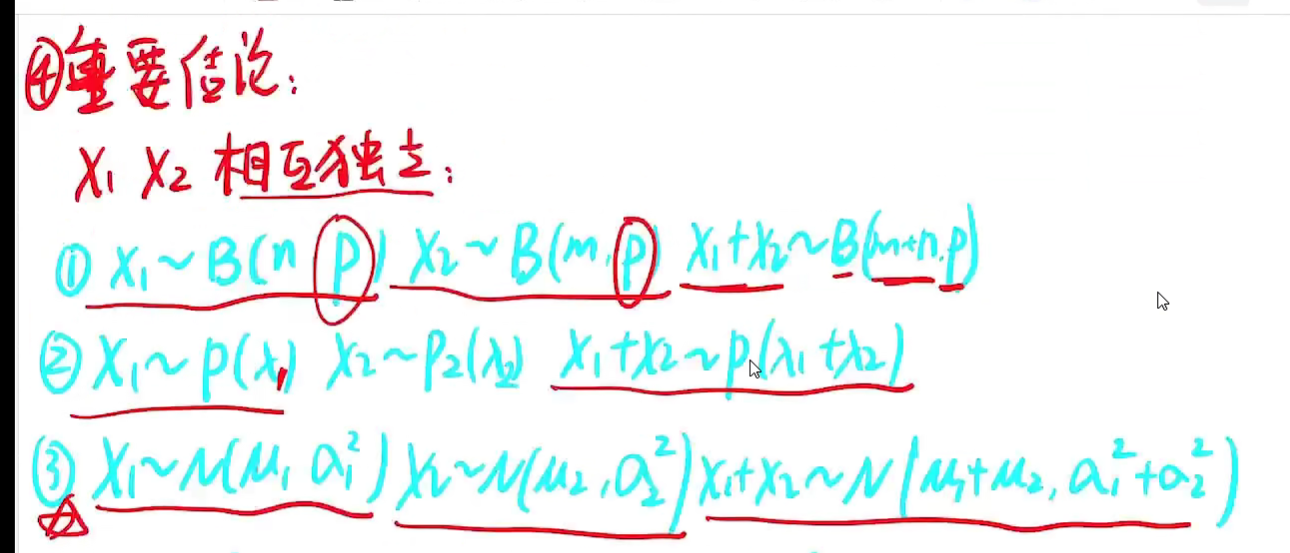 ④重要结论:
X₁ X₂ 相互独立:
① X₁~B(n p) X₂~B(m,p) X₁+X₂~B(m+n,p)
② X₁~P(λ₁) X₂~P₂(λ₂) X₁+X₂~P(λ₁+λ₂)
③ X₁~N(μ₁ a₁²) X₂~N(μ₂,a₂²) X₁+X₂~N(μ₁+μ₂, a₁²+a₂²)